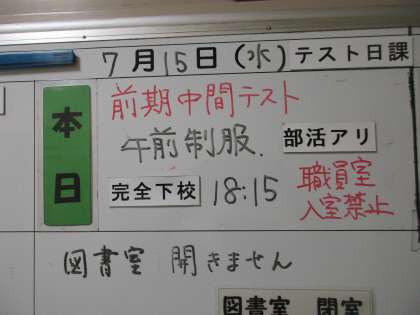 7月15日(水)テスト日課
本日
前期中間テスト
午前制服.
部活アリ
完全下校 18:15
職員室
入室禁止
図書室 開きません
図書室 閉室